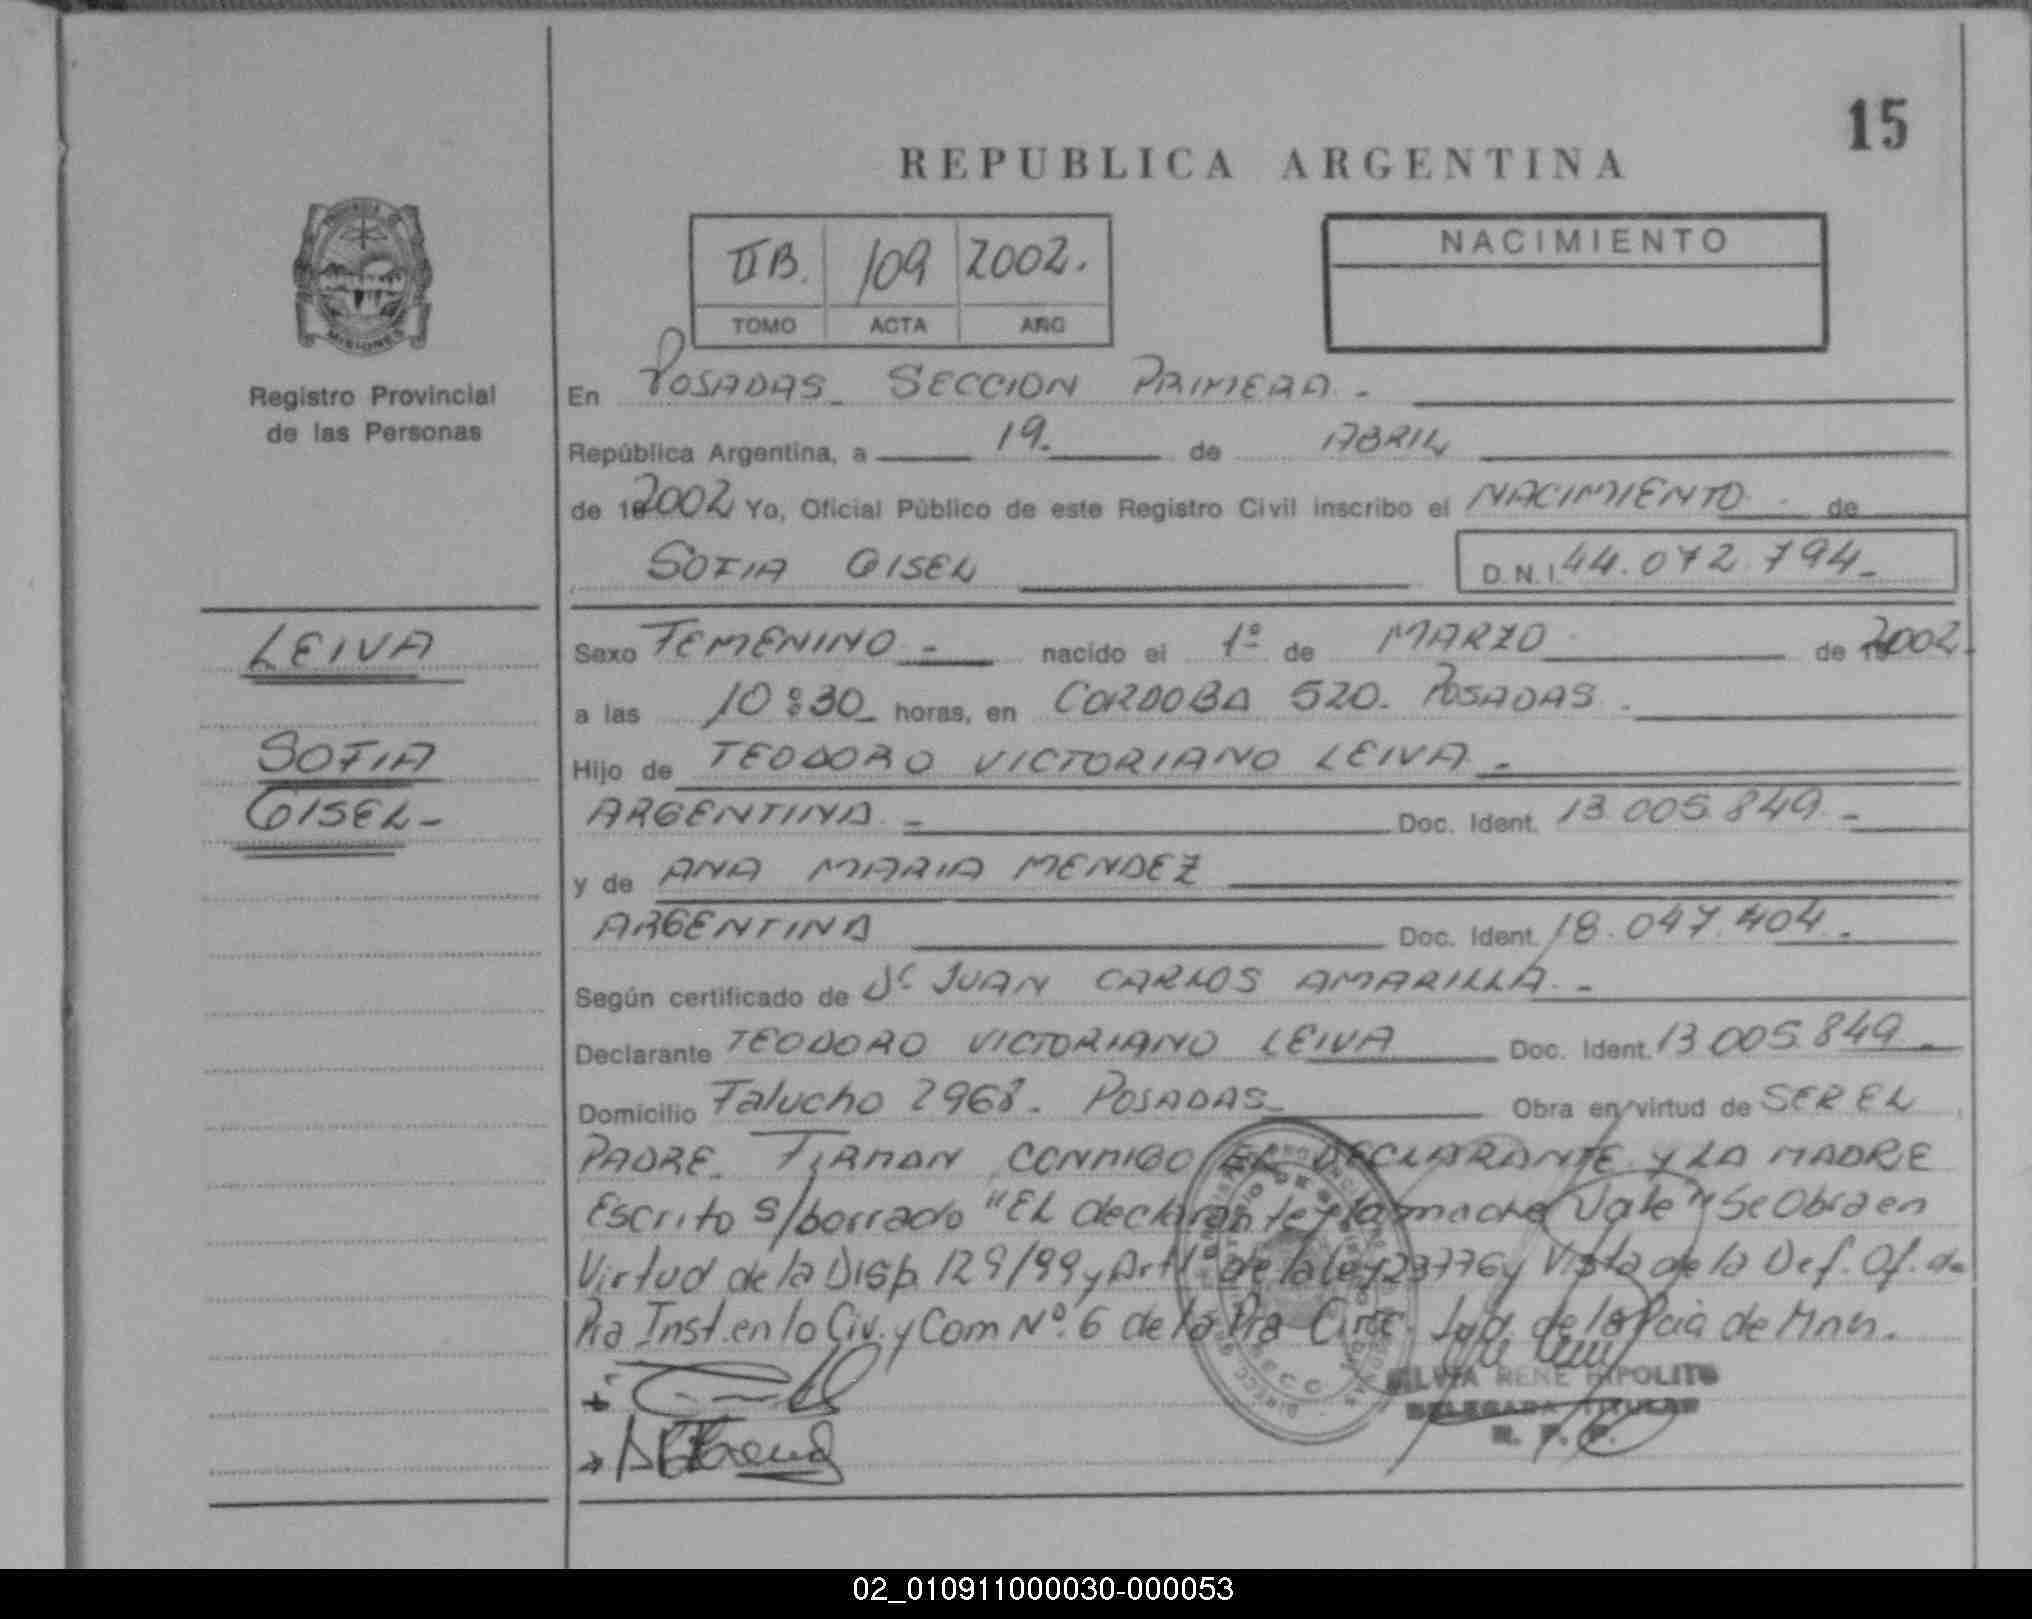 15
REPUBLICA ARGENTINA
IIB. 109 2002.
TOMO ACTA AÑO
NACIMIENTO
MISIONES
Registro Provincial
de las Personas
En POSADAS_ SECCION PRIMERA.-
República Argentina, a 19. de ABRIL
de 2002 Yo, Oficial Público de este Registro Civil inscribo el NACIMIENTO de
SOFIA GISEL D.N.I. 44.072.794_
LEIVA
SOFIA
GISEL-
Sexo FEMENINO - nacido el 1º de MARZO de 2002
a las 10:30_ horas, en CORDOBA 520. POSADAS.
Hijo de TEODORO VICTORIANO LEIVA -
ARGENTINA.- Doc. Ident. 13.005.849.-
y de ANA MARIA MENDEZ
ARGENTINA Doc. Ident. 18.047.404.
Según certificado de Dr JUAN CARLOS AMARILLA.-
Declarante TEODORO VICTORIANO LEIVA Doc. Ident. 13.005.849_
Domicilio Falucho 2968. POSADAS_ Obra en virtud de SER EL
PADRE. FIRMAN CONMIGO EL DECLARANTE Y LA MADRE
Escrito s/borrado "EL declarante y la madre Vale" Se Obra en
Virtud de la Disp. 129/99 y Art 1º de la Ley 23776 y Vista de la Def. Of. de
Pra Inst. en lo Civ. y Com Nº. 6 de la Pra Circ. Jud. de la Pcia de Mnes.
SILVIA RENE HIPOLITO
DELEGADA TITULAR
R. P. P.
02_010911000030-000053